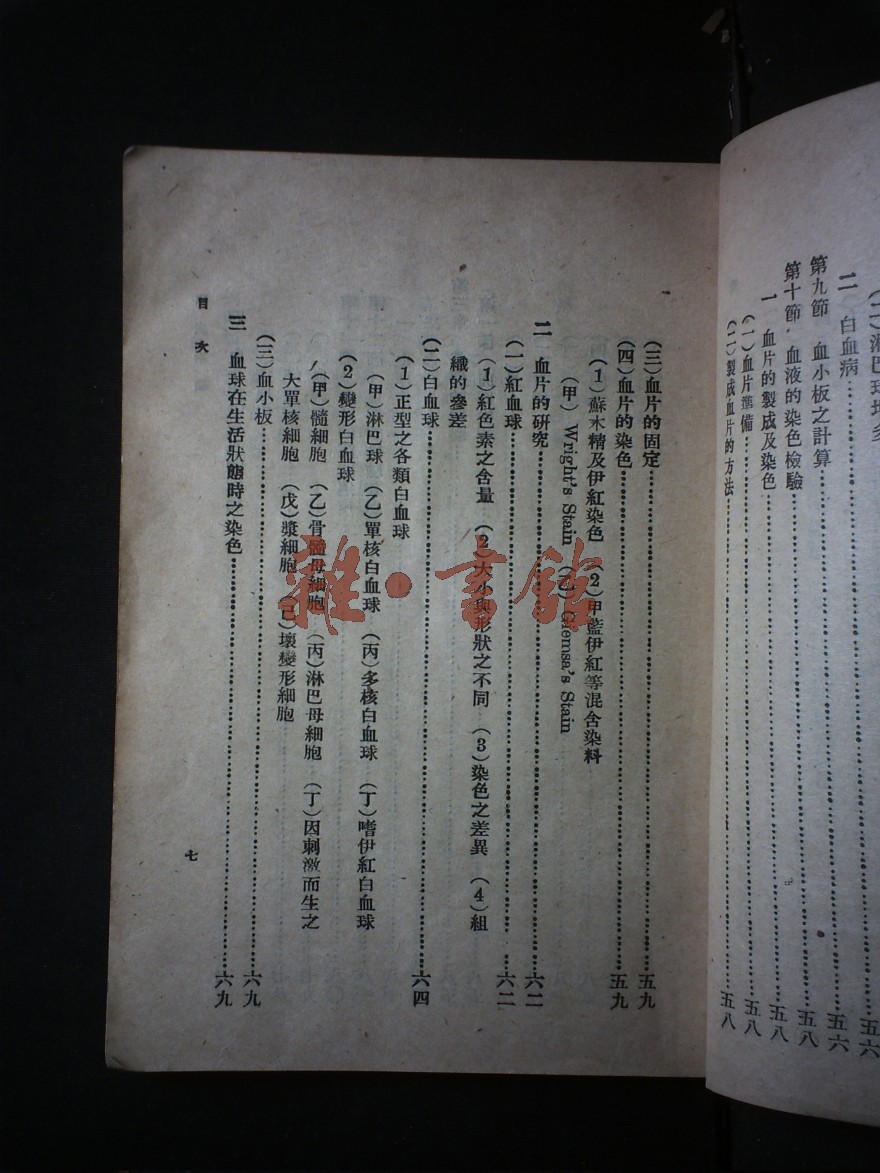 二 白血病……五六
第九節 血小板之計算……五六
第十節 血液的染色檢驗……五八
一 血片的製成及染色……五八
(一)血片準備……五八
(二)製成血片的方法……五八
(三)血片的固定……五九
(四)血片的染色……五九
(1)蘇木精及伊紅染色 (2)甲藍伊紅等混合染料
(甲) Wright's Stain (乙) Giemsa's Stain
二 血片的研究……六二
(一)紅血球……六二
(1)紅色素之含量 (2)大小與形狀之不同 (3)染色之差異 (4)組
織的參差
(二)白血球……六四
(1)正型之各類白血球
(甲)淋巴球 (乙)單核白血球 (丙)多核白血球 (丁)嗜伊紅白血球
(2)變形白血球
(甲)髓細胞 (乙)骨髓母細胞 (丙)淋巴母細胞 (丁)因刺激而生之
大單核細胞 (戊)漿細胞 (己)壞變形細胞
(三)血小板……六九
三 血球在生活狀態時之染色……六九
目次
七
雜·書館